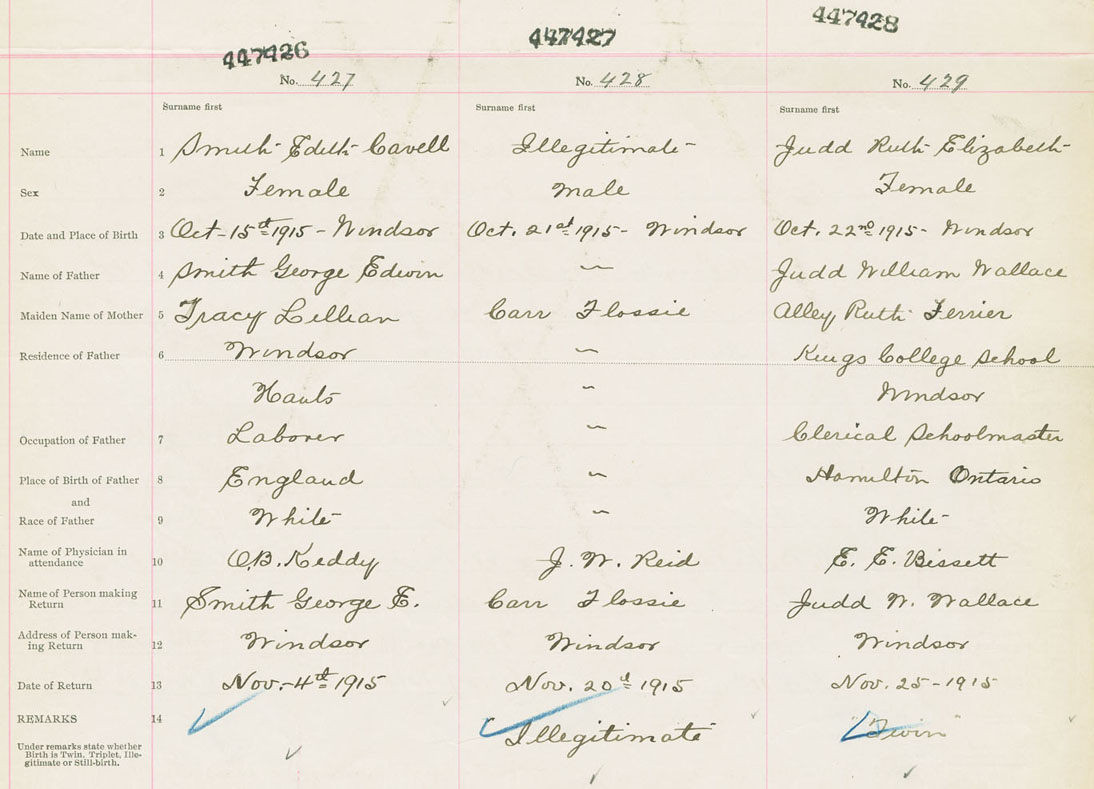 447426 447427 447428
No. 427 No. 428 No. 429
Surname first Surname first Surname first
Name 1 Smith Edith Cavell Illegitimate Judd Ruth Elizabeth
Sex 2 Female Male Female
Date and Place of Birth 3 Oct-15th 1915 - Windsor Oct. 21st 1915 - Windsor Oct. 22nd 1915 - Windsor
Name of Father 4 Smith George Edwin ~ Judd William Wallace
Maiden Name of Mother 5 Tracy Lillian Carr Flossie Alley Ruth Ferrier
Residence of Father 6 Windsor ~ Kings College School
Hants ~ Windsor
Occupation of Father 7 Laborer ~ Clerical Schoolmaster
Place of Birth of Father 8 England ~ Hamilton Ontario
and
Race of Father 9 White ~ White
Name of Physician in
attendance 10 O.B. Keddy J. W. Reid E. E. Bissett
Name of Person making
Return 11 Smith George E. Carr Flossie Judd W. Wallace
Address of Person mak-
ing Return 12 Windsor Windsor Windsor
Date of Return 13 Nov.-4th 1915 Nov. 20th 1915 Nov. 25-1915
REMARKS 14 Illegitimate "Twin"
Under remarks state whether
Birth is Twin, Triplet, Ille-
gitimate or Still-birth.